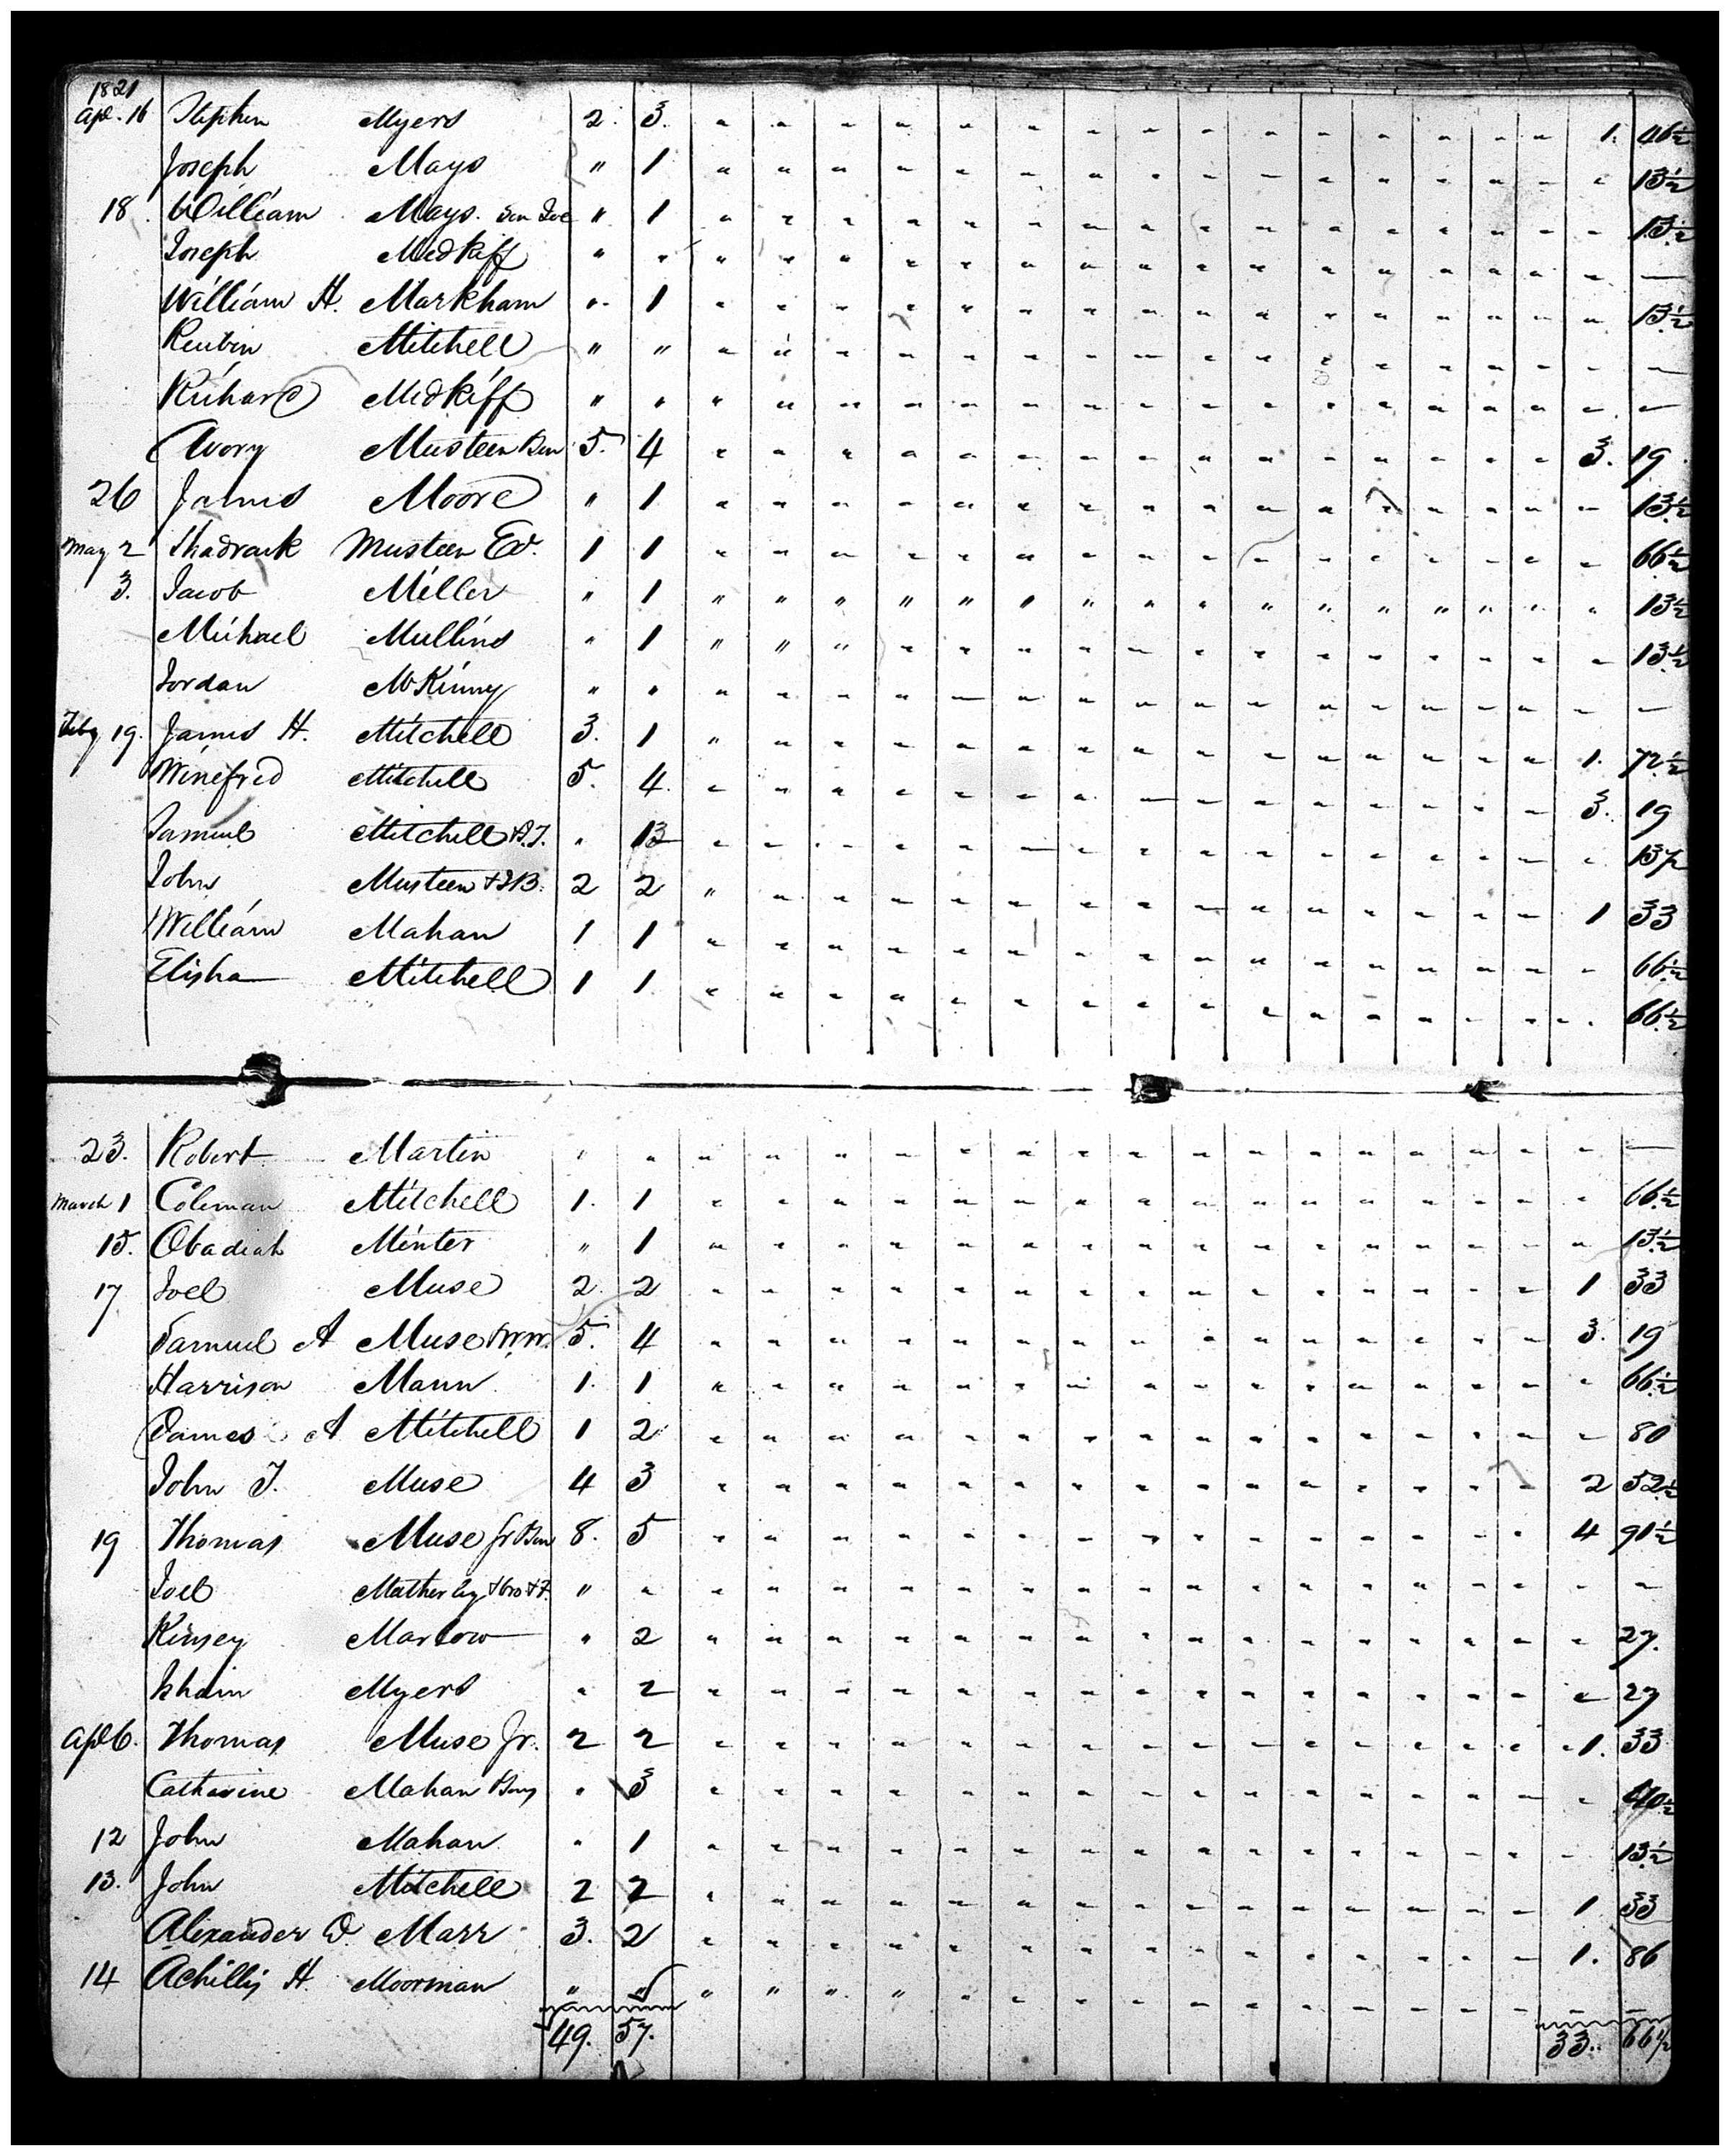 1821
Apl. 16 Stephen Myers 2. 3. " " " " " " " " " " " " " " " 1. 46½
Joseph Mays " 1 " " " " " " " " " " " " " " " " 13½
18. William Mays. Son Joe " 1 " " " " " " " " " " " " " " " " 13½
Joseph Medkiff " " " " " " " " " " " " " " " " " " —
William H. Markham " 1 " " " " " " " " " " " " " " " " 13½
Reubin Mitchell " " " " " " " " " " " " " " " " " " —
Richard Medkiff " " " " " " " " " " " " " " " " " " —
Avory Musteen Ben 5. 4 " " " " " " " " " " " " " " " 3. 19
26 James Moore " 1 " " " " " " " " " " " " " " " " 13½
May 2 Shadrack Musteen Ed. 1 1 " " " " " " " " " " " " " " " " 66½
3. Jacob Miller " 1 " " " " " " " " " " " " " " " " 13½
Michael Mullins " 1 " " " " " " " " " " " " " " " " 13½
Jordan McKinny " " " " " " " " " " " " " " " " " " —
Feby 19. James H. Mitchell 3. 1 " " " " " " " " " " " " " " " 1. 72½
Winefred Mitchell 5. 4. " " " " " " " " " " " " " " " 3. 19
Samuel Mitchell " 13 " " " " " " " " " " " " " " " "
John Musteen 2 2 " " " " " " " " " " " " " " " 1 33
William Mahan 1 1 " " " " " " " " " " " " " " " " 66½
Elisha Mitchell 1 1 " " " " " " " " " " " " " " " " 66½
23. Robert Martin " " " " " " " " " " " " " " " " " " —
March 1 Coleman Mitchell 1. 1 " " " " " " " " " " " " " " " " 66½
15. Obadiah Minter " 1 " " " " " " " " " " " " " " " " 13½
17 Joel Muse 2. 2 " " " " " " " " " " " " " " " 1 33
Samuel A Muse 5. 4 " " " " " " " " " " " " " " " 3. 19
Harrison Mann 1. 1 " " " " " " " " " " " " " " " " 66½
James A Mitchell 1 2 " " " " " " " " " " " " " " " " 80
John T. Muse 4 3 " " " " " " " " " " " " " " " 2 52½
19 Thomas Muse Jr Ben 8. 5 " " " " " " " " " " " " " " " 4 91½
Joel " " " " " " " " " " " " " " " " " " "
Kinsey Marlow " 2 " " " " " " " " " " " " " " " " 27.
Myers " 2 " " " " " " " " " " " " " " " " 27
Apl 6. Thomas Muse Jr. 2 2 " " " " " " " " " " " " " " " 1. 33
Catharine Mahan " 3 " " " " " " " " " " " " " " " " 40½
12 John Mahan " 1 " " " " " " " " " " " " " " " " 13½
13. John Mitchell 2 2 " " " " " " " " " " " " " " " 1 33
Alexander D. Marr 3. 2 " " " " " " " " " " " " " " " 1. 86
14 Achillis H. Moorman " " " " " " " " " " " " " " " " " " "
49. 57. 33.. 66½